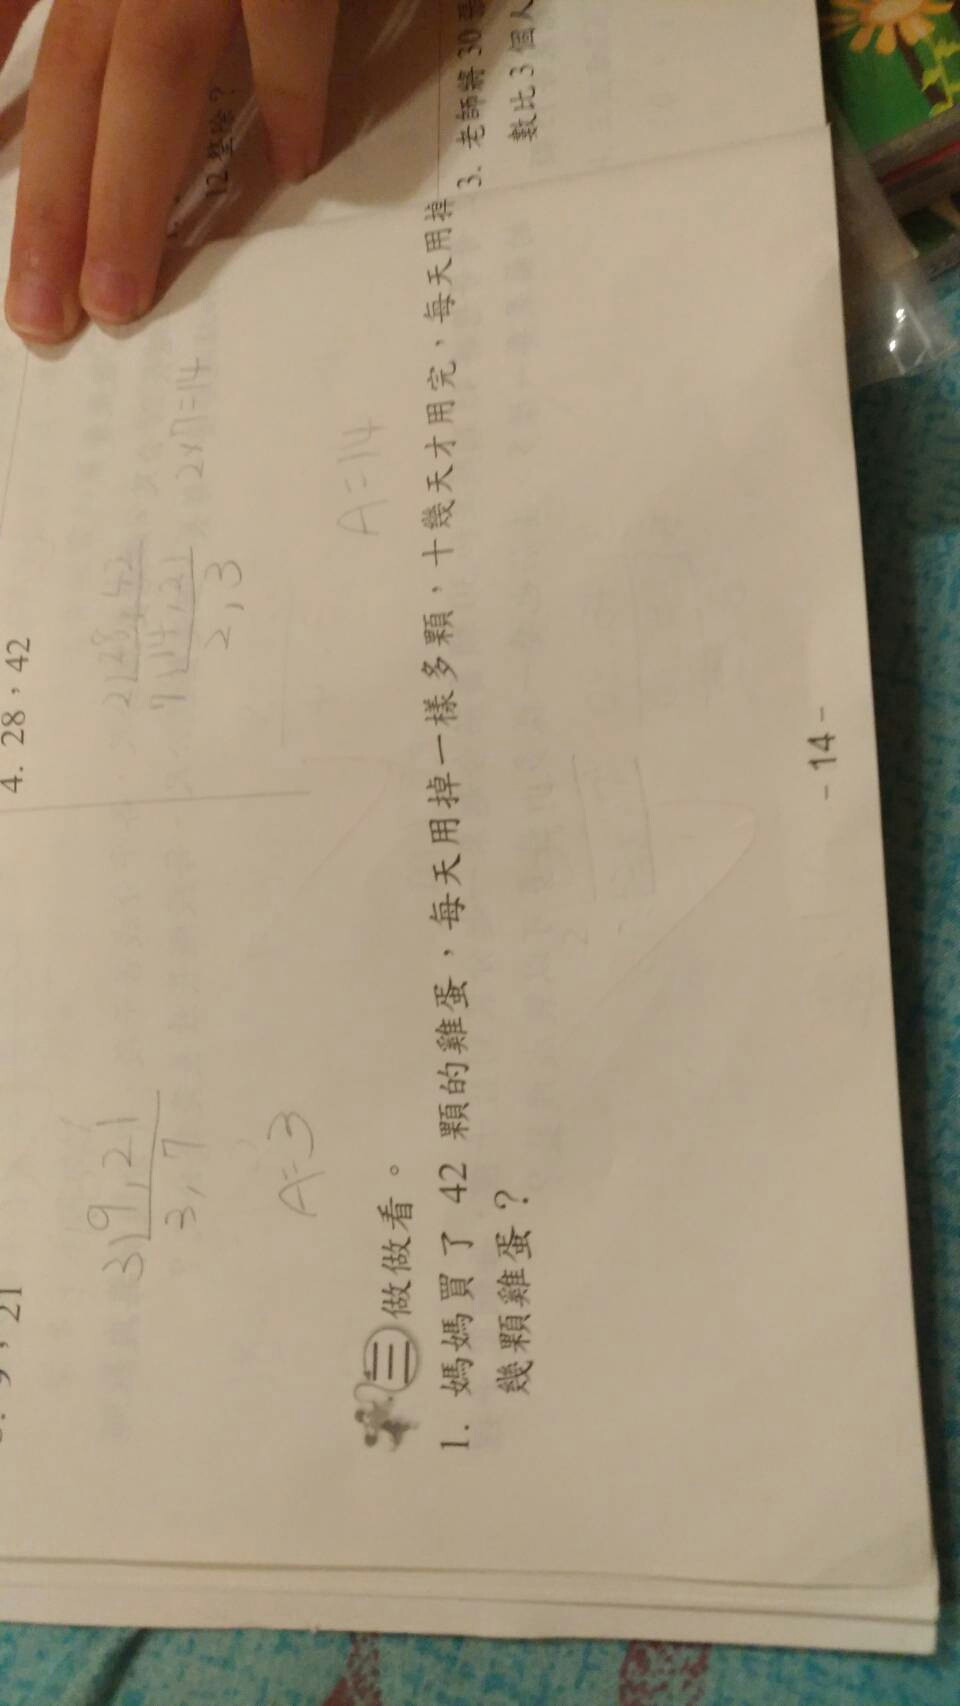 9，21
4. 28，42
3 9,21
3,7
A=3
2 28,42
7 14,21
2,3
2×7=14
A=14
三 做做看。
1. 媽媽買了 42 顆的雞蛋，每天用掉一樣多顆，十幾天才用完，每天用掉
幾顆雞蛋？
-14-
12整除？
3. 老師將30
數比3個人